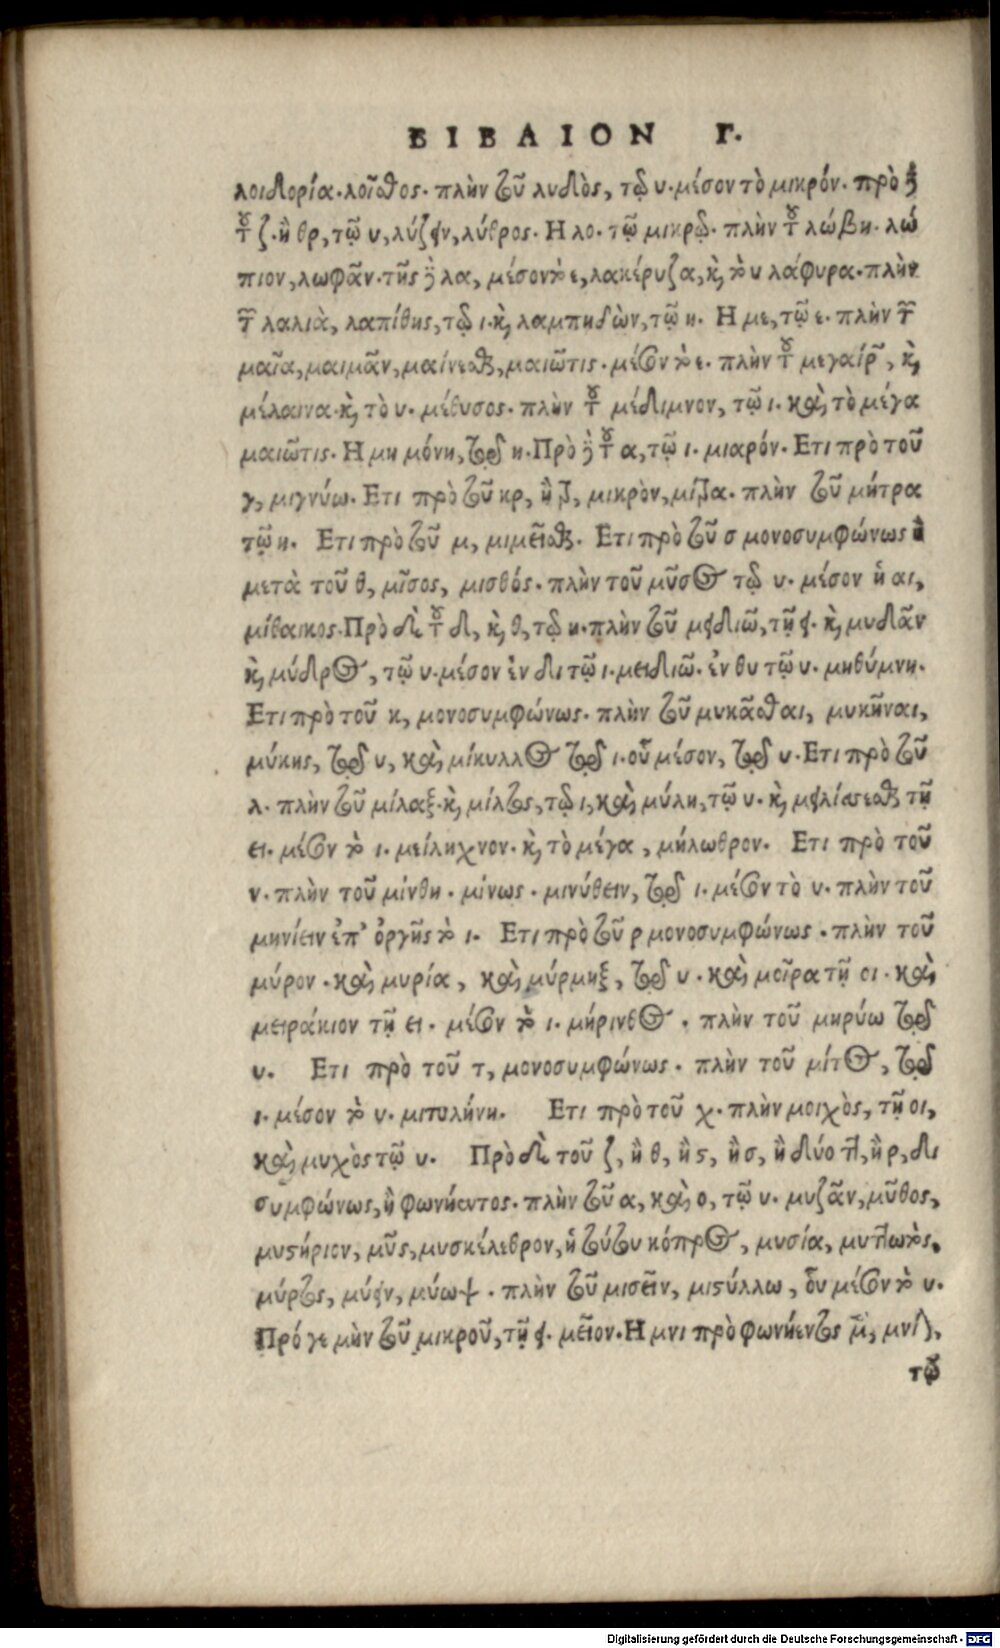 ΒΙΒΛΙΟΝ Γ.
λοιδορία. λοῖσθος. πλὴν τοῦ λυδὸς, τῷ υ. μέσον τὸ μικρόν. πρὸ δὲ
τοῦ ζ. ἢ θρ, τῷ υ, λύζειν, λύθρος. Η λο. τῷ μικρῷ. πλὴν τοῦ λώβη. λώ
πιον, λωφᾶν. τῆς δὲ λα, μέσον τὸ ε, λακέρυζα, καὶ τὸ υ λάφυρα. πλὴν
τῶν λαλιὰ, λαπίθης, τῷ ι. καὶ λαμπηδὼν, τῷ η. Η με, τῷ ε. πλὴν τῶν
μαῖα, μαιμᾶν, μαίνεσθαι, μαιῶτις. μέσον τὸ ε. πλὴν τοῦ μεγαίρειν, καὶ
μέλαινα. καὶ τὸ υ. μέθυσος. πλὴν τοῦ μέδιμνον, τῷ ι. καὶ τὸ μέγα
μαιῶτις. Η μη μόνη, τῷ η. Πρὸ δὲ τοῦ α, τῷ ι. μιαρόν. Ετι πρὸ τοῦ
γ, μιγνύω. Ετι πρὸ τοῦ κρ, ἢ ξ, μικρὸν, μίξα. πλὴν τοῦ μήτρα
τῷ η. Ετι πρὸ τοῦ μ, μιμεῖσθαι. Ετι πρὸ τοῦ σ μονοσυμφώνως ἢ
μετὰ τοῦ θ, μῖσος, μισθός. πλὴν τοῦ μῦσος τῷ υ. μέσον ἡ αι,
μίθαικος. Πρὸ δὲ τοῦ δ, καὶ θ, τῷ η. πλὴν τοῦ μειδιῶ, τῇ ει. καὶ μυδᾶν
καὶ μύδρος, τῷ υ. μέσον ἐν δι τῷ ι. μειδιῶ. ἐν θυ τῷ υ. μηθύμνη.
Ετι πρὸ τοῦ κ, μονοσυμφώνως. πλὴν τοῦ μυκᾶσθαι, μυκῆναι,
μύκης, τῷ υ, καὶ μίκυλλος τῷ ι. οὗ μέσον, τῷ υ. Ετι πρὸ τοῦ
λ. πλὴν τοῦ μίλαξ. καὶ μίλτος, τῷ ι, καὶ μύλη, τῷ υ. καὶ μειλίσσεσθαι τῇ
ει. μέσον τὸ ι. μείληχνον. καὶ τὸ μέγα, μήλωθρον. Ετι πρὸ τοῦ
ν. πλὴν τοῦ μίνθη. μίνως. μινύθειν, τῷ ι. μέσον τὸ υ. πλὴν τοῦ
μηνίειν ἐπ' ὀργῆς τὸ ι. Ετι πρὸ τοῦ ρ μονοσυμφώνως. πλὴν τοῦ
μύρον. καὶ μυρία, καὶ μύρμηξ, τῷ υ. καὶ μοῖρα τῇ οι. καὶ
μειράκιον τῇ ει. μέσον τὸ ι. μήρινθος. πλὴν τοῦ μηρύω τῷ
υ. Ετι πρὸ τοῦ τ, μονοσυμφώνως. πλὴν τοῦ μίτος, τῷ
ι. μέσον τὸ υ. μιτυλήνη. Ετι πρὸ τοῦ χ. πλὴν μοιχὸς, τῇ οι,
καὶ μυχὸς τῷ υ. Πρὸ δὲ τοῦ ζ, ἢ θ, ἢ ς, ἢ σ, ἢ δύο ττ, ἢ ρ, δι
συμφώνως, ἢ φωνήεντος. πλὴν τοῦ α, καὶ ο, τῷ υ. μυζᾶν, μῦθος,
μυστήριον, μῦς, μυσκέλεθρον, ἡ τούτου κόπρος, μυσία, μυττωτὸς,
μύρτος, μύειν, μύωψ. πλὴν τοῦ μισεῖν, μιστύλλω, οὗ μέσον τὸ υ.
Πρό γε μὴν τοῦ μικροῦ, τῇ ει. μεῖον. Η μνι πρὸ φωνήεντος μὲν,
τῷ